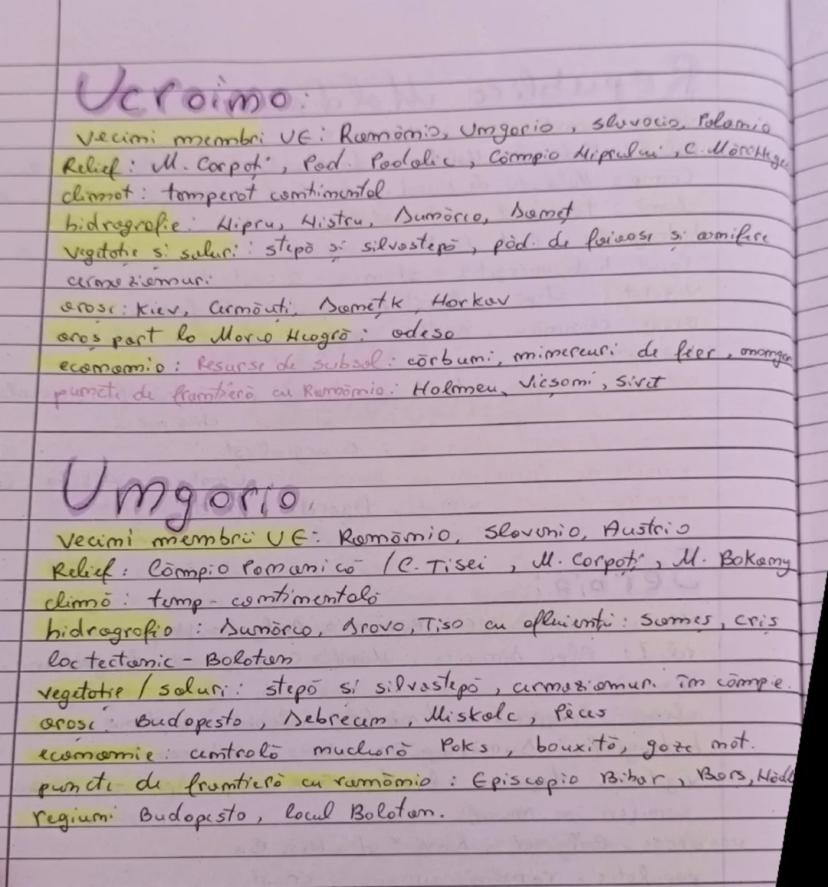 Ucraina:
Vecini membri UE: România, Ungaria, Slovacia, Polonia
Relief: M. Carpați, Pod. Podolic, Câmpia Niprului, C. Mării Negre
climat: temperat continental
hidrografie: Nipru, Nistru, Dunărea, Doneț
vegetatie si soluri: stepă și silvostepă, păd. de foioase si conifere
cernoziomuri
orase: Kiev, Cernăuti, Donetk, Harkov
oras port la Marea Neagră: odesa
economia: Resurse de subsol: cărbuni, minereuri de fier,
puncte de frontieră cu România: Halmeu, Vicsani, Siret
Ungaria
Vecini membri UE: România, Slovenia, Austria
Relief: Câmpia Panonică / C. Tisei, M. Carpați, M. Bakony
climă: temp-continentală
hidrografia: Dunărea, Drava, Tisa cu afluienți: Somes, Cris
lac tectonic - Balaton
vegetatie / soluri: stepă si silvostepă, cernoziomuri în câmpie.
orase: Budapesta, Debrecen, Miskolc, Pécs
economie: centrală nucleară Paks, bauxită, gaze nat.
puncte de frontieră cu românia: Episcopia Bihor, Bors,
regiuni Budapesta, lacul Balaton.